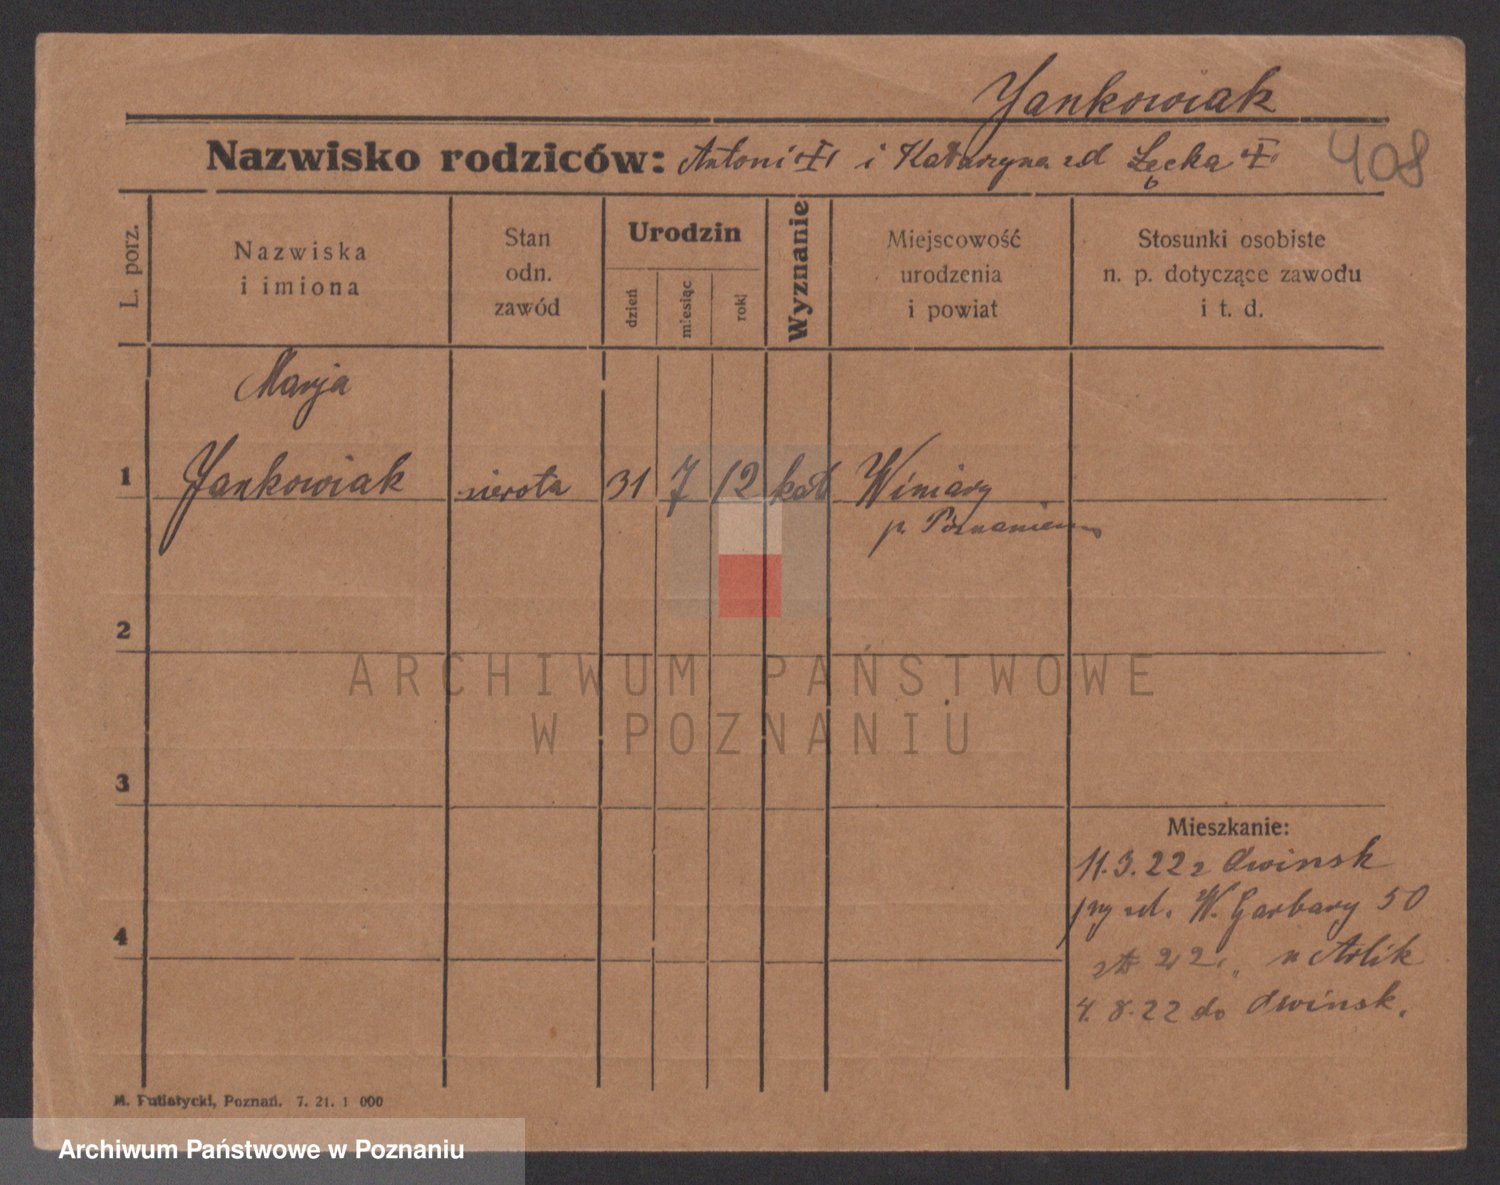 Jankowiak
Nazwisko rodziców: Antoni i Katarzyna zd Łęcka
408
L. porz.
Nazwiska
i imiona
Stan
odn.
zawód
Urodzin
dzień
miesiąc
roki
Wyznanie
Miejscowość
urodzenia
i powiat
Stosunki osobiste
n. p. dotyczące zawodu
i t. d.
Marja
1 Jankowiak sierota 31 7 12 kat Winiary
p. Poznaniem
2
ARCHIWUM PAŃSTWOWE
W POZNANIU
3
Mieszkanie:
11.3.22 z Owinsk
W. Garbary 50
4
4. 8. 22 do Owinsk.
M. Putiatycki, Poznań. 7. 21. 1 000
Archiwum Państwowe w Poznaniu